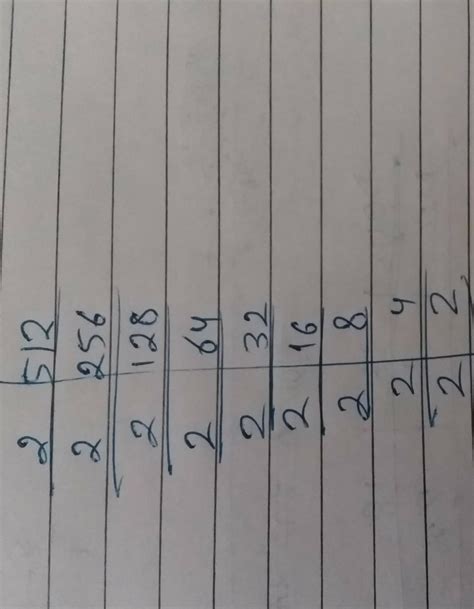 2 512
2 256
2 128
2 64
2 32
2 16
2 8
2 4
2 2